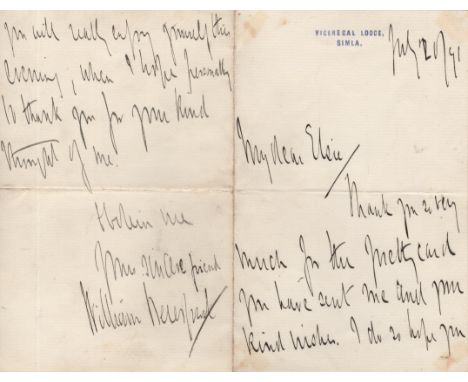 VICEREGAL LODGE,
SIMLA.
July 20/91
My dear Elsie
Thank you so very
much for the pretty card
you have sent me and your
kind wishes. I do so hope you
you will really enjoy yourself this
evening, when I hope personally
to thank you for your kind
thought of me.
Believe me
Your sincere friend
William Beresford